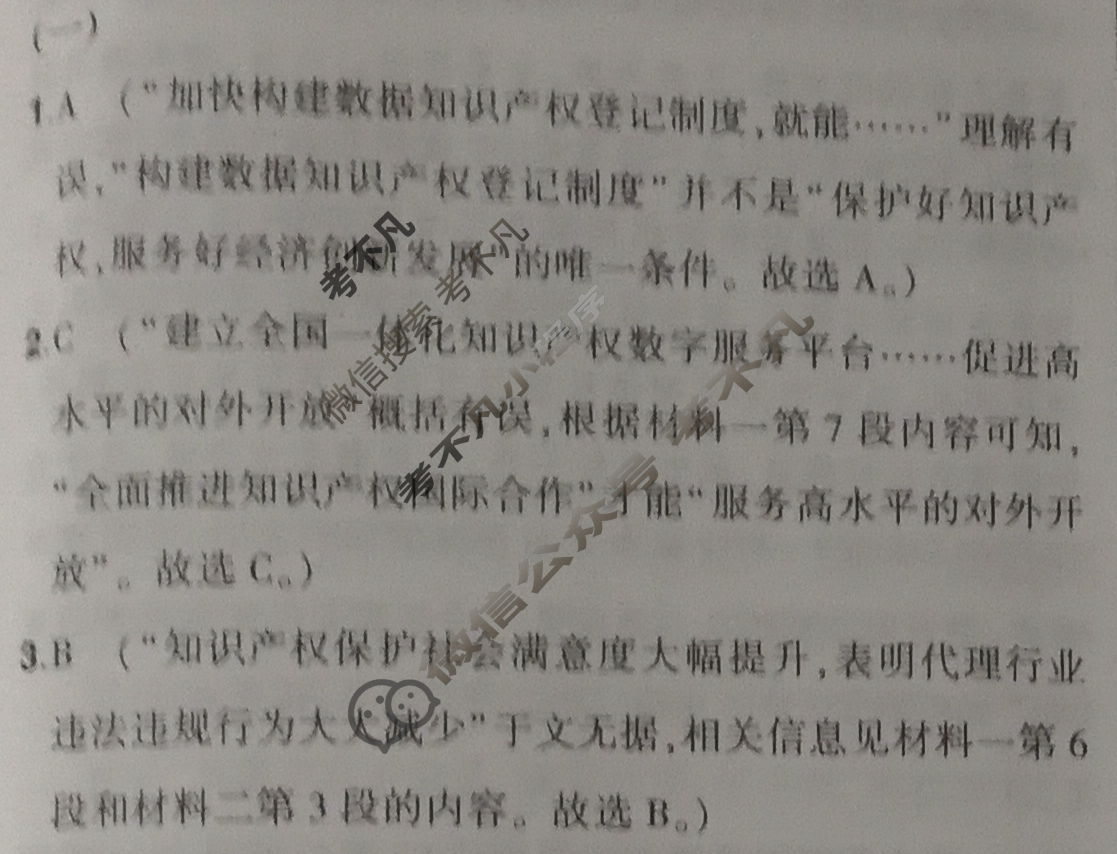 (一)
1.A （“加快构建数据知识产权登记制度,就能……”理解有
误,“构建数据知识产权登记制度”并不是“保护好知识产
权,服务好经济创新发展”的唯一条件。故选A。）
2.C （“建立全国一体化知识产权数字服务平台……促进高
水平的对外开放”概括有误,根据材料一第7段内容可知,
“全面推进知识产权国际合作”才能“服务高水平的对外开
放”。故选C。）
3.B （“知识产权保护社会满意度大幅提升,表明代理行业
违法违规行为大大减少”于文无据,相关信息见材料一第6
段和材料二第3段的内容。故选B。）
考不凡
微信搜索 考不凡
考不凡小程序
微信公众号 考不凡